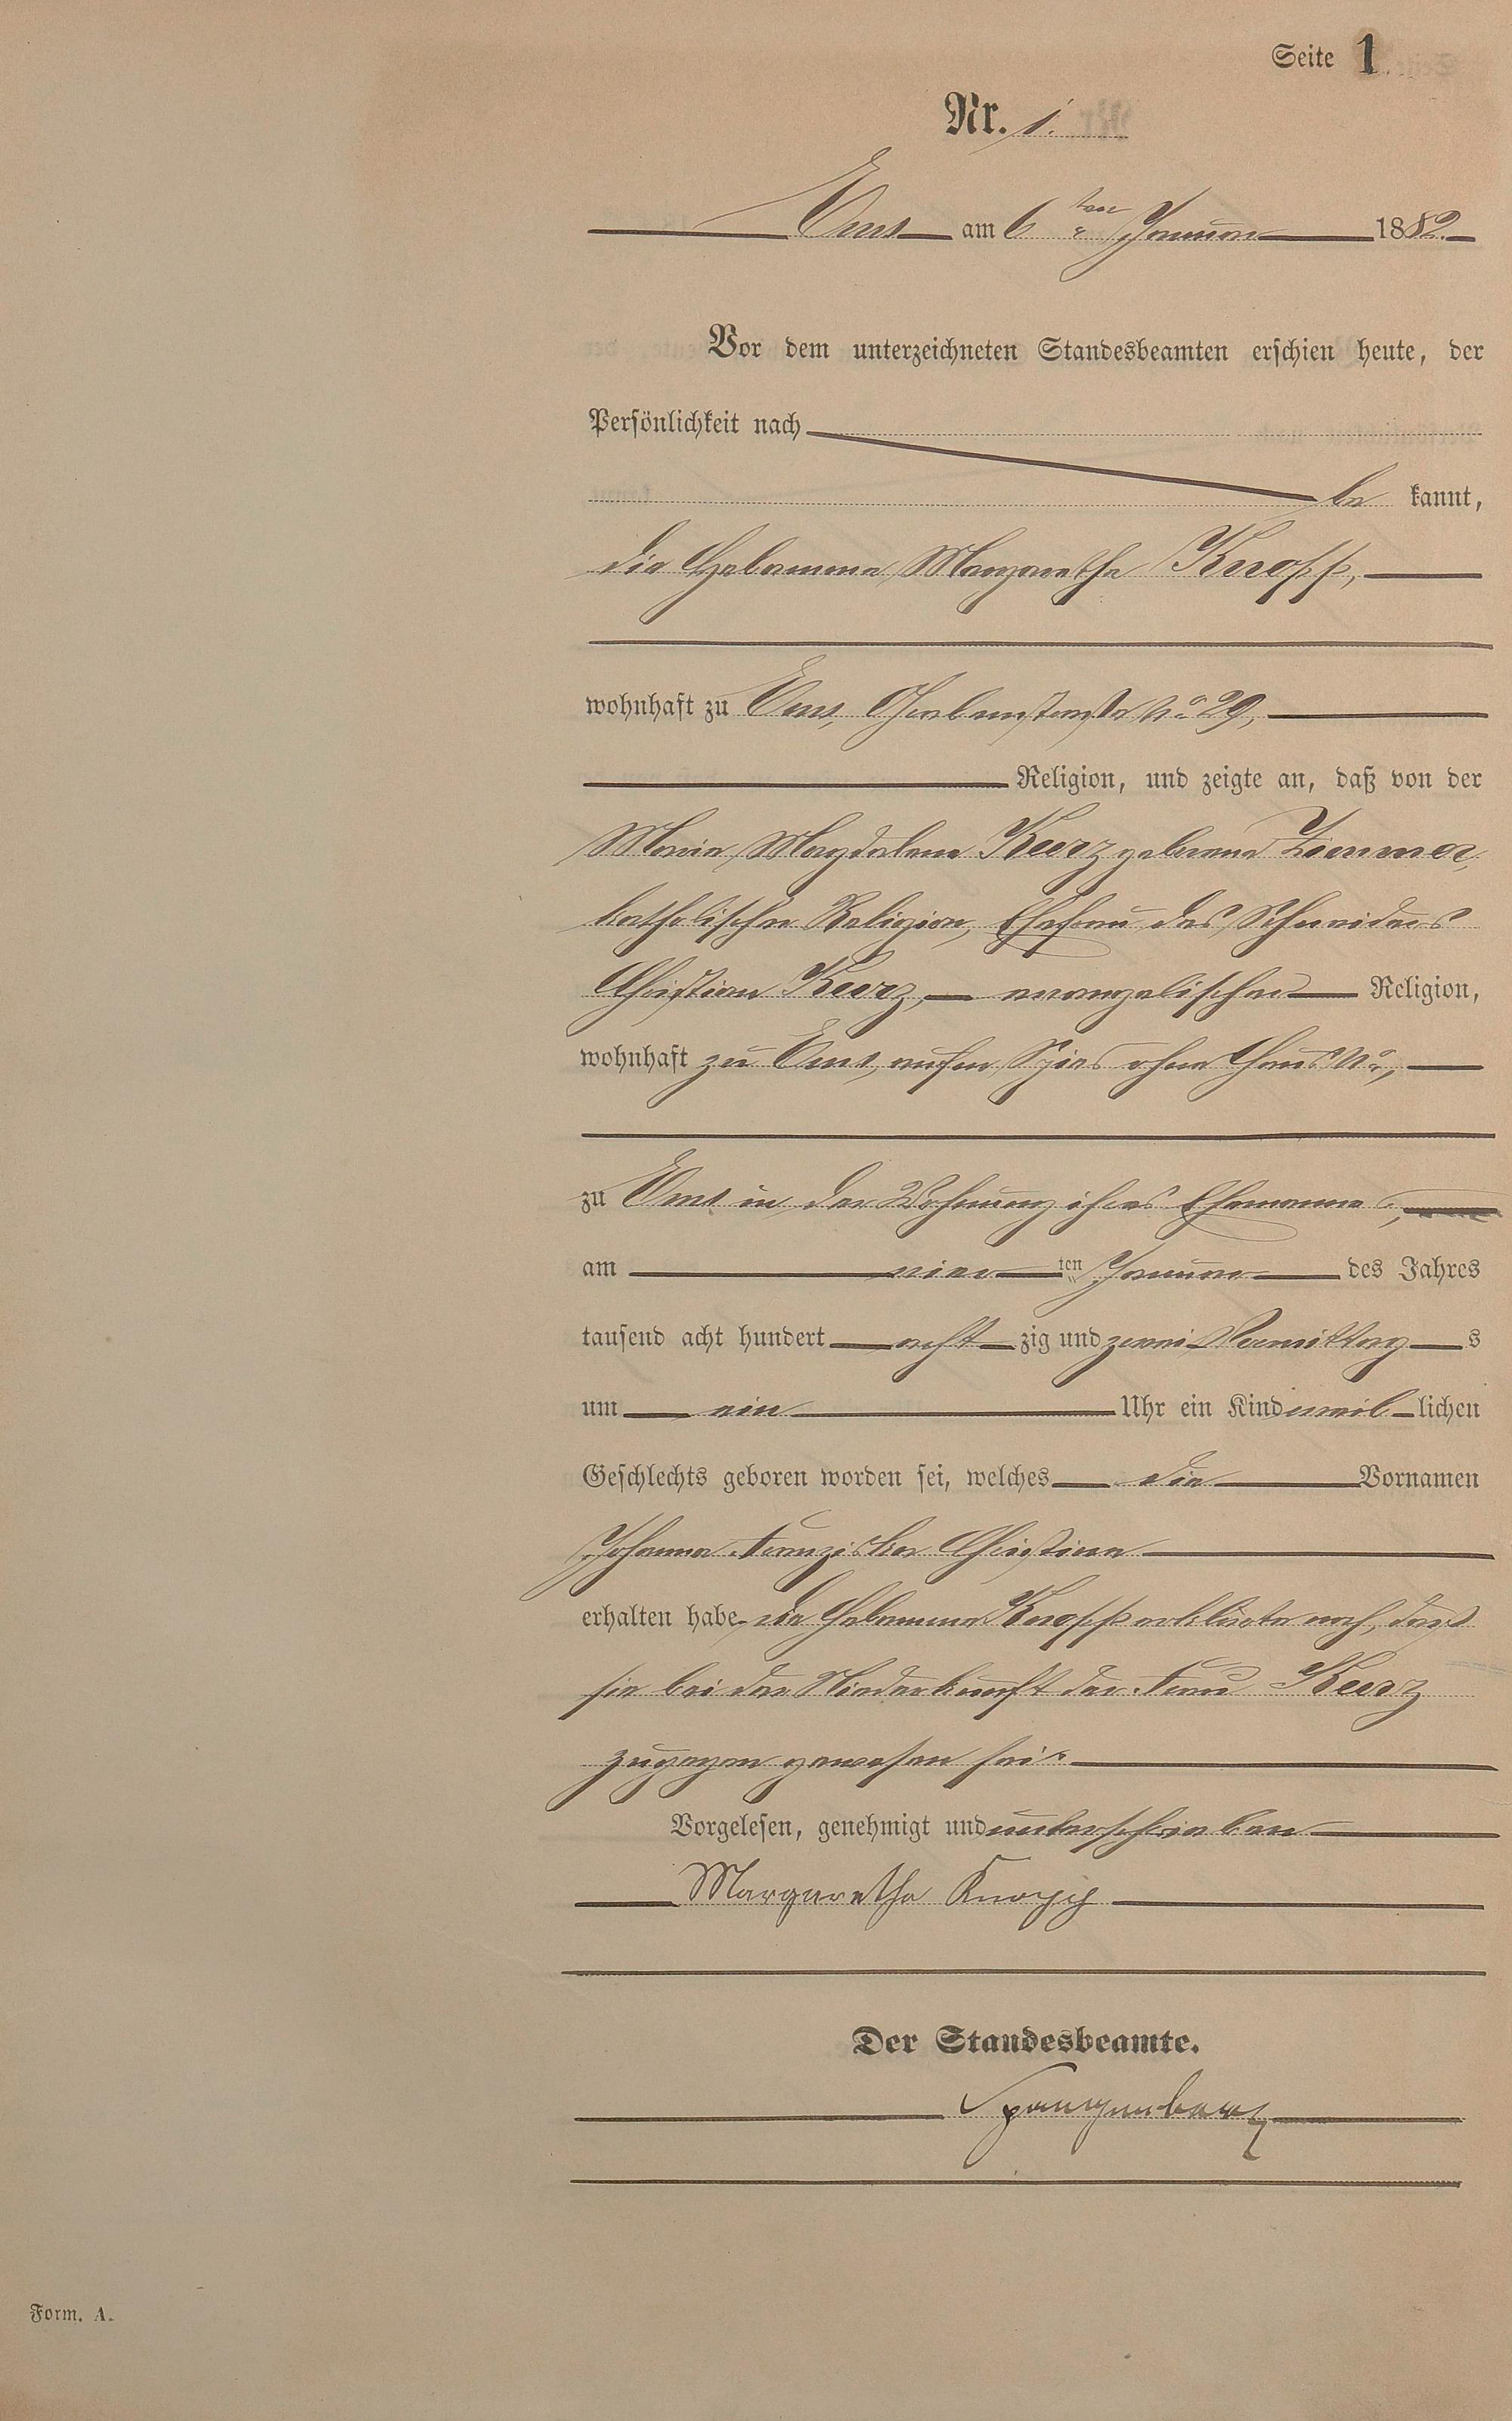 Seite 1
Nr. 1.
Ems am 6ten Januar 1882.
Vor dem unterzeichneten Standesbeamten erschien heute, der
Persönlichkeit nach
be kannt,
die Hebamme Margarethe Knopp,
wohnhaft zu Ems, Grabenstraße No 29,
Religion, und zeigte an, daß von der
Maria Magdalena Kurz geborene Zimmer,
katholischer Religion, Ehefrau des Schneiders
Christian Kurz, evangelischer Religion,
wohnhaft zu Ems, aufm Spies ohne Haus No,
zu Ems in der Wohnung ihres Ehemannes,
am vier ten Januar des Jahres
tausend acht hundert acht zig und zwei Vormittag s
um ein Uhr ein Kind weib lichen
Geschlechts geboren worden sei, welches die Vornamen
Johanna Franziska Christina
erhalten habe. die Hebamme Knopp erklärte noch, dass
sie bei der Niederkunft der Frau Kurz
zugegen gewesen sei.
Vorgelesen, genehmigt und unterschrieben
Margaretha Knopp
Der Standesbeamte.
Spangenberg
Form. A.